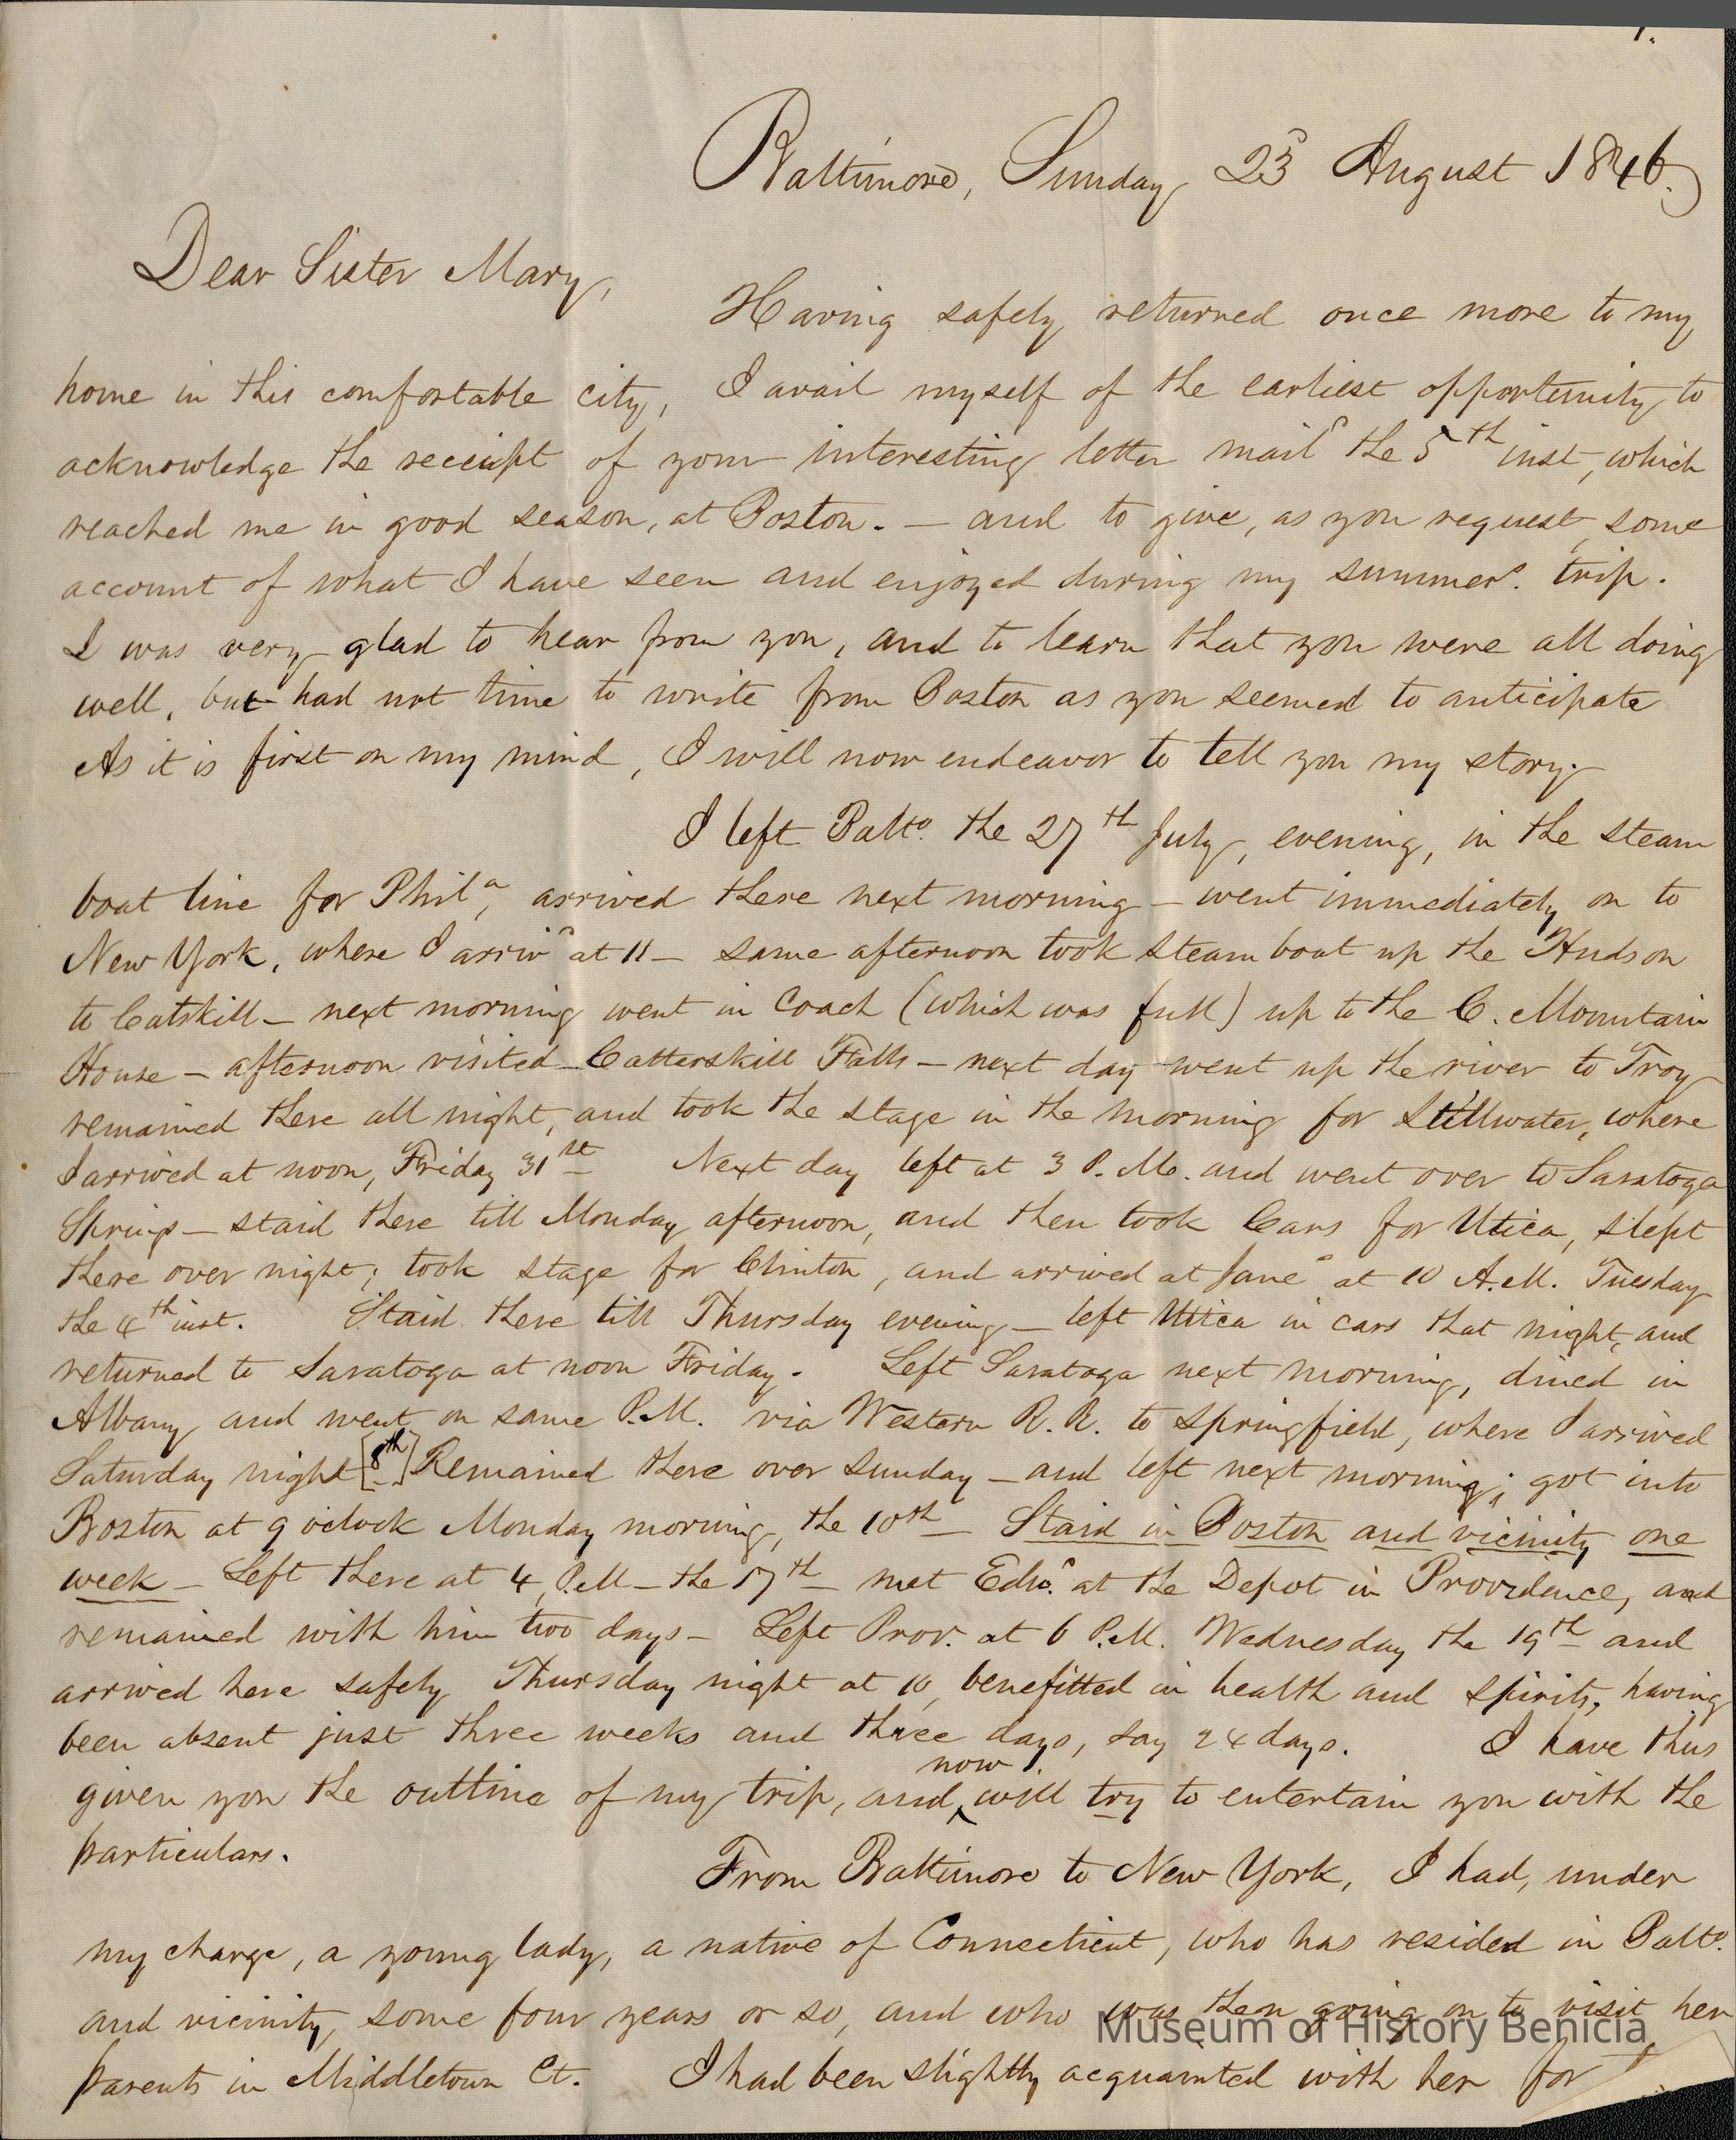 1.
Baltimore, Sunday 23d August 1846.
Dear Sister Mary,
Having safely returned once more to my
home in this comfortable city, I avail myself of the earliest opportunity to
acknowledge the receipt of your interesting letter maild the 5th inst, which
reached me in good season, at Boston. — and to give, as you request, some
account of what I have seen and enjoyed during my summer trip.
I was very glad to hear from you, and to learn that you were all doing
well, but had not time to write from Boston as you seemed to anticipate
As it is first on my mind, I will now endeavor to tell you my story.
I left Balto. the 27th July, evening, in the steam
boat line for Phila, arrived there next morning — went immediately on to
New York, where I arrivd at 11 — same afternoon took steam boat up the Hudson
to Catskill — next morning went in Coach (which was full) up to the C. Mountain
House — afternoon visited Catterskill Falls — next day went up the river to Troy
remained there all night, and took the stage in the morning for Stillwater, where
I arrived at noon, Friday 31st Next day left at 3 P.M. and went over to Saratoga
Springs — staid there till Monday afternoon, and then took Cars for Utica, slept
there over night; took stage for Clinton, and arrived at Jane's at 10 A.M. Tuesday
the 4th inst. Staid there till Thursday evening — left Utica in cars that night, and
returned to Saratoga at noon Friday. Left Saratoga next morning, dined in
Albany and went on same P.M. via Western R.R. to Springfield, where I arrived
Saturday night [8th] Remained there over Sunday — and left next morning; got into
Boston at 9 oclock Monday morning, the 10th — Staid in Boston and vicinity one
week — Left there at 4 P.M — the 17th — met Edwd. at the Depot in Providence, and
remained with him two days — Left Prov. at 6 P.M. Wednesday the 19th and
arrived here safely Thursday night at 10, benefitted in health and spirits, having
been absent just three weeks and three days, say 24 days. I have thus
given you the outline of my trip, and now will try to entertain you with the
particulars.
From Baltimore to New York, I had, under
my charge, a young lady, a native of Connecticut, who has resided in Balto.
and vicinity, some four years or so, and who was then going on to visit her
parents in Middletown Ct. I had been slightly acquainted with her for
Museum of History Benicia